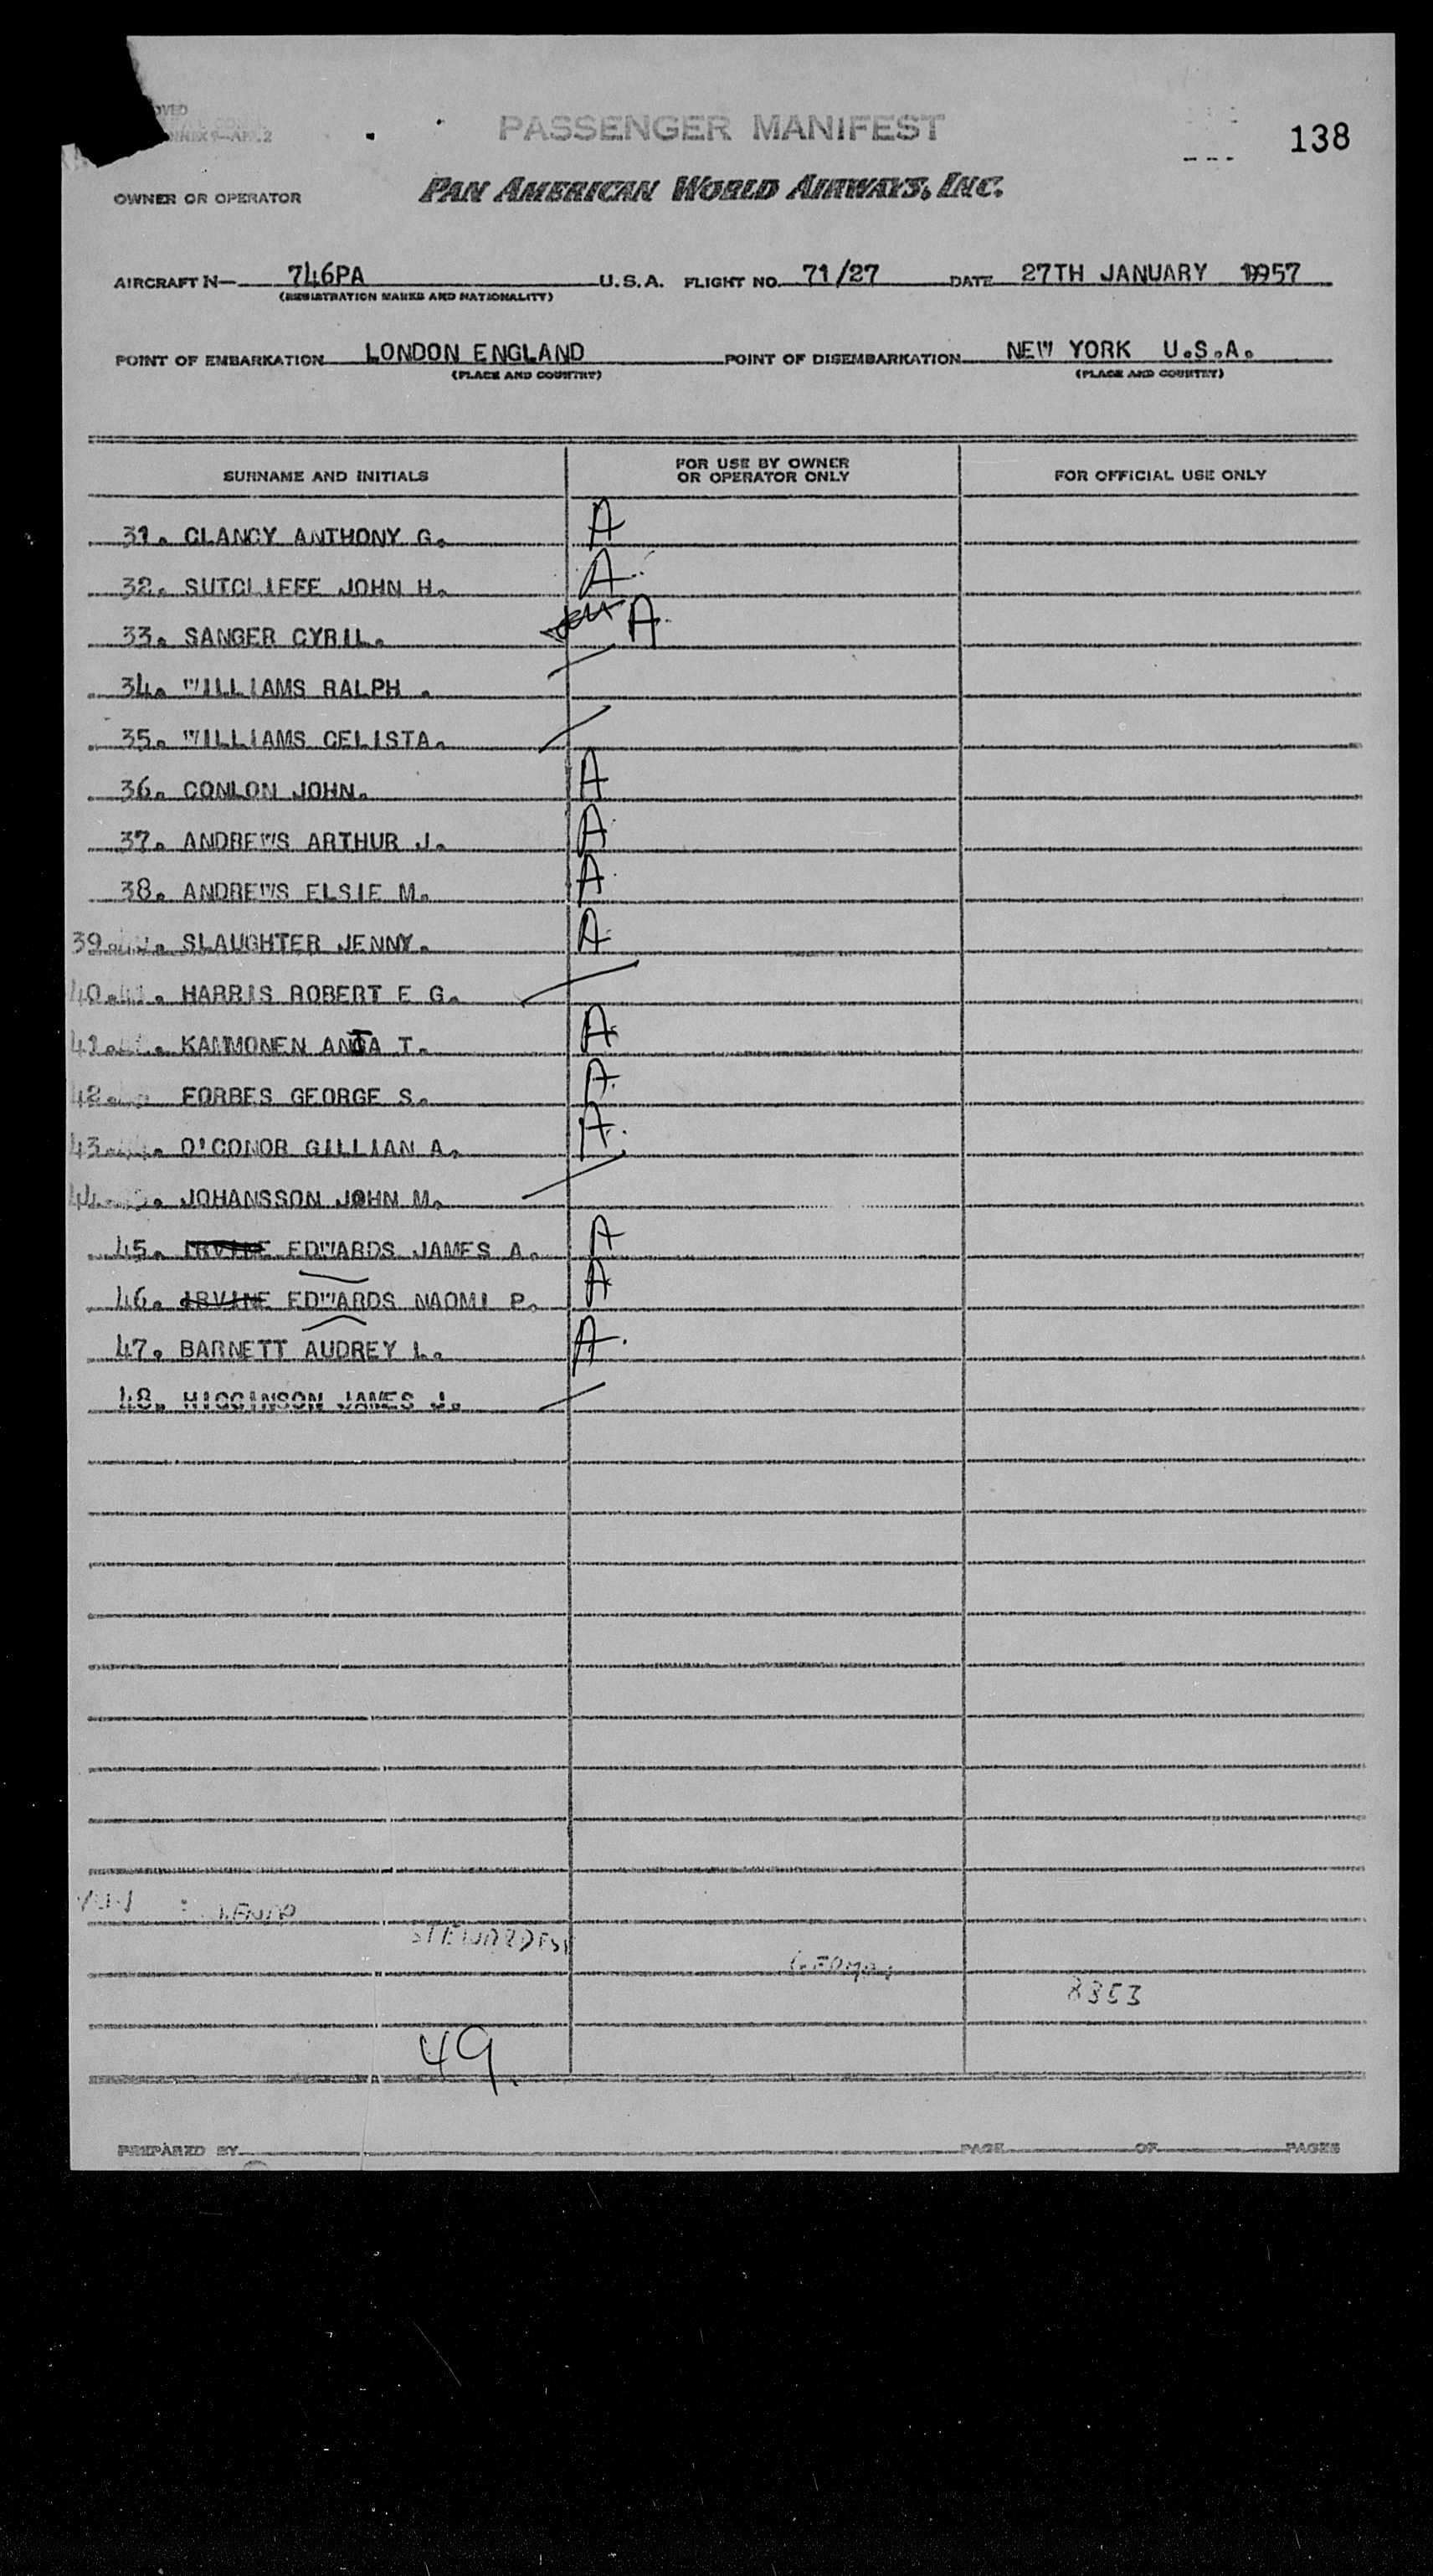 OVED
ANNEX 9-AP. 2
PASSENGER MANIFEST
138
OWNER OR OPERATOR PAN AMERICAN WORLD AIRWAYS, INC.
AIRCRAFT N— 746PA U.S.A. FLIGHT NO. 71/27 DATE 27TH JANUARY 1957
(REGISTRATION MARKS AND NATIONALITY)
POINT OF EMBARKATION LONDON ENGLAND POINT OF DISEMBARKATION NEW YORK U.S.A.
(PLACE AND COUNTRY) (PLACE AND COUNTRY)
SURNAME AND INITIALS FOR USE BY OWNER OR OPERATOR ONLY FOR OFFICIAL USE ONLY
31. CLANCY ANTHONY G. A
32. SUTCLIFFE JOHN H. A
33. SANGER CYRIL. A
34. WILLIAMS RALPH .
35. WILLIAMS CELISTA.
36. CONLON JOHN. A
37. ANDREWS ARTHUR J. A
38. ANDREWS ELSIE M. A
39. SLAUGHTER JENNY. A
40. HARRIS ROBERT E G.
41. KAMMONEN ANJA T. A
42. FORBES GEORGE S. A
43. O'CONOR GILLIAN A. A
44. JOHANSSON JOHN M.
45. IRVINE EDWARDS JAMES A. A
46. IRVINE EDWARDS NAOMI P. A
47. BARNETT AUDREY L. A
48. HIGGINSON JAMES J.
STEWARDESS
8353
49.
PREPARED BY PAGE OF PAGES